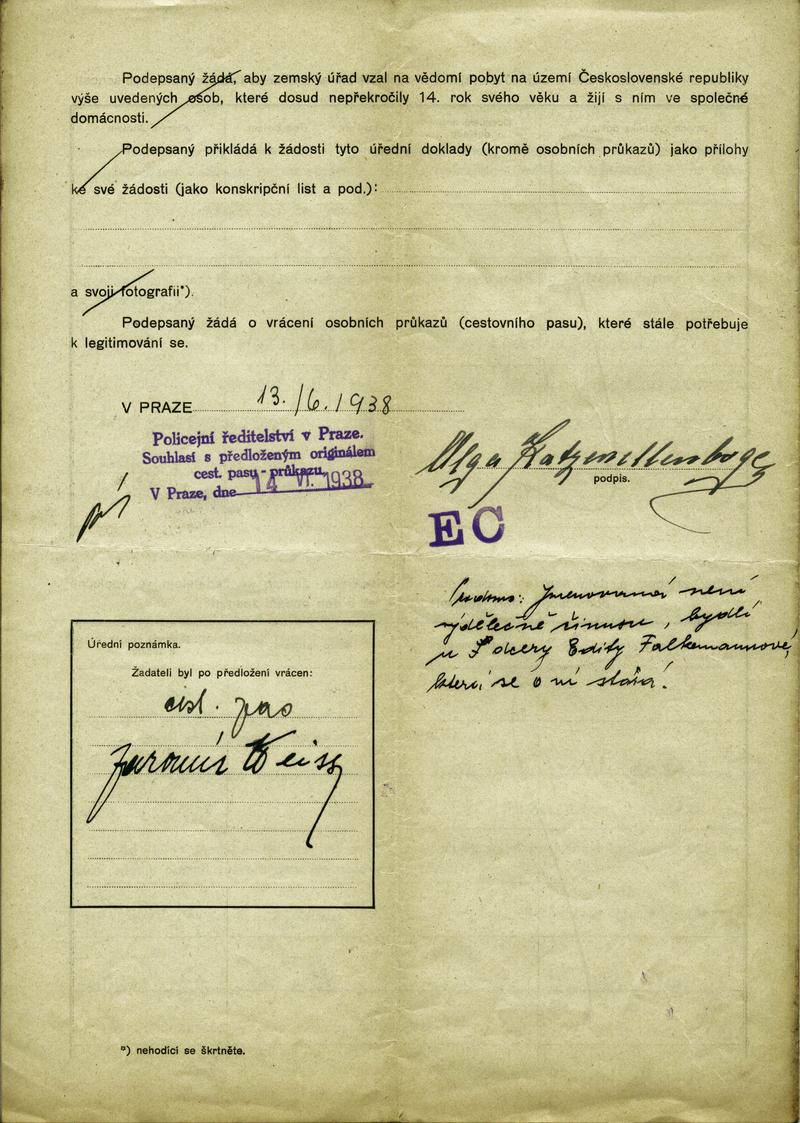 Podepsaný žádá, aby zemský úřad vzal na vědomí pobyt na území Československé republiky
výše uvedených osob, které dosud nepřekročily 14. rok svého věku a žijí s ním ve společné
domácnosti.
Podepsaný přikládá k žádosti tyto úřední doklady (kromě osobních průkazů) jako přílohy
ke své žádosti (jako konskripční list a pod.):
a svoji fotografii*).
Podepsaný žádá o vrácení osobních průkazů (cestovního pasu), které stále potřebuje
k legitimování se.
V PRAZE 13./6.1938
Policejní ředitelství v Praze.
Souhlasí s předloženým originálem
cest. pasu - průkazu.
V Praze, dne 14 VI. 1938
Olga Katzenellenboge
podpis.
EC
Jmenovaná není
výdělečně činnou, bydlí
u dcery Edity Falkemannové,
která se o ni stará.
Úřední poznámka.
Žadateli byl po předložení vrácen:
cest. pas
Jaromír Weiss
*) nehodící se škrtněte.